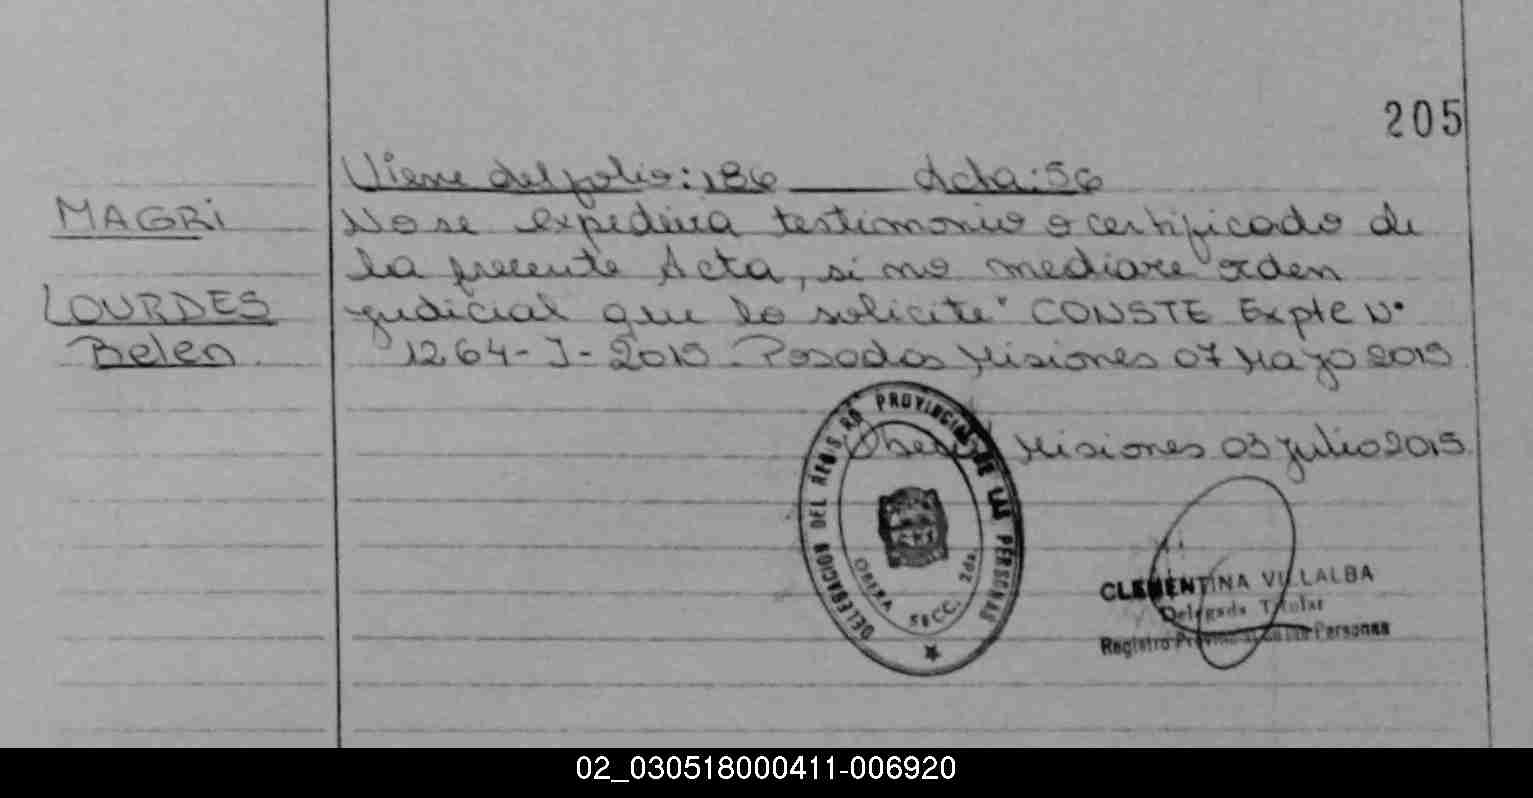 205
Viene del folio: 186 Acta: 56
MAGRi
No se expedira testimonio o certificado de
la presente Acta, si no mediare orden
LOURDES
judicial que lo solicite" CONSTE Expte Nº
Belen
1264-J-2015. Posadas Misiones 07 Mayo 2015
Obera Misiones 03 julio 2015
DELEGACION DEL REGIS. RO PROVINCIAL DE LAS PERSONAS
OBERA SECC. 2da.
CLEMENTINA VILLALBA
Delegada Titular
Registro Provincial de las Personas
02_030518000411-006920